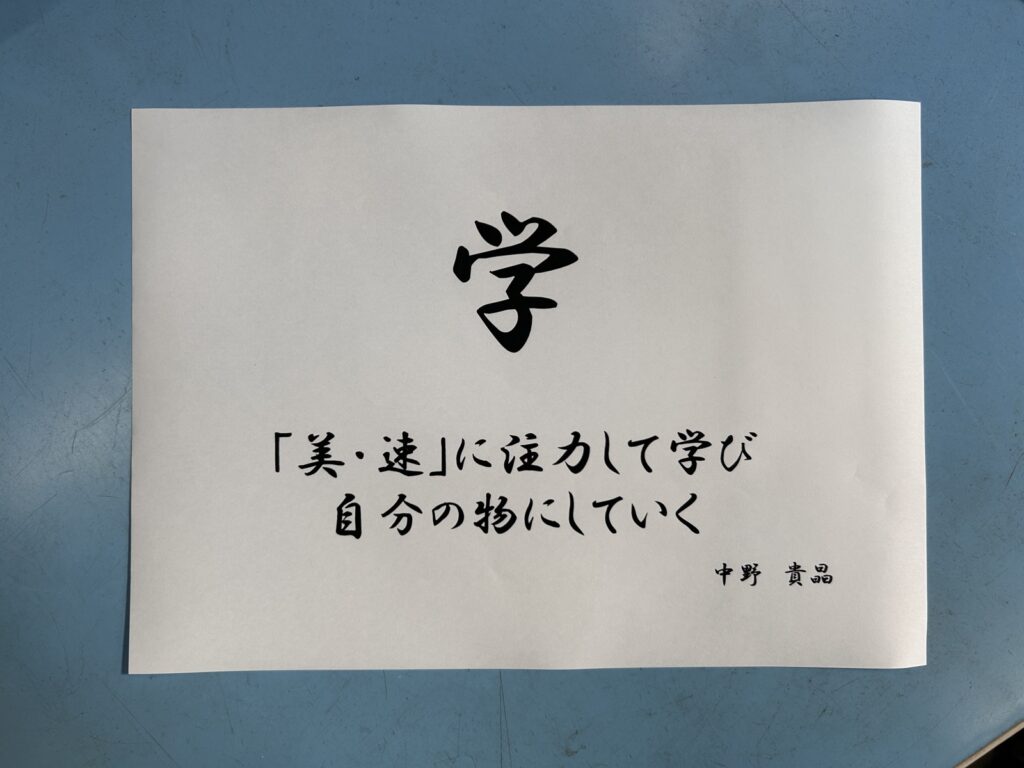 学
「美・速」に注力して学び
自分の物にしていく
中野　貴晶